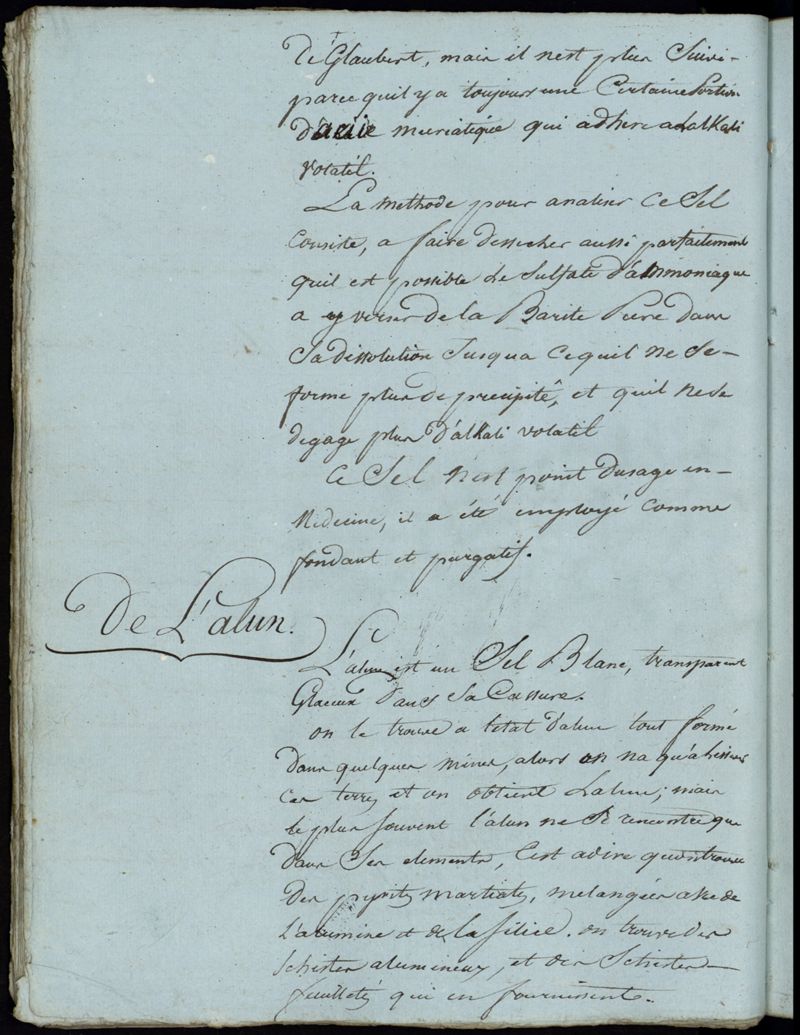 de Glaubert, mais il nest plus Suivi-
parcequil y a toujours une Certaine Portion
d'acide muriatique qui adhere a Lalkali
volatil.
La methode pour analiser Ce Sel
Consiste, a faire dessecher aussi parfaitement
quil est possible Le Sulfate d'ammoniaque
a y verser de la Barite Pure dans
Sa dissolution Jusqua Cequil ne Se-
forme plus de precipité, et quil ne Se
degage plus d'alkali volatil
Ce Sel n'est point dusage en-
Medecine, il a été employé comme
fondant et purgatif.
De L'alun.
L'alun est un Sel Blanc, transparent
Glaceux dans Sa Cassure.
on le trouve a letat dalun tout formé
dans quelques mines, alors on na qu'a lessiver
Ces terres et on obtient Lalun; mais
le plus souvent l'alun ne Se rencontre que
dans Ses elements, C'est adire quon trouve
des pyrites martiales, melangées avec de
L'alumine et de la silice. on trouve des
schistes alumineux, et des Schistes-
feuilletés qui en fournissent.